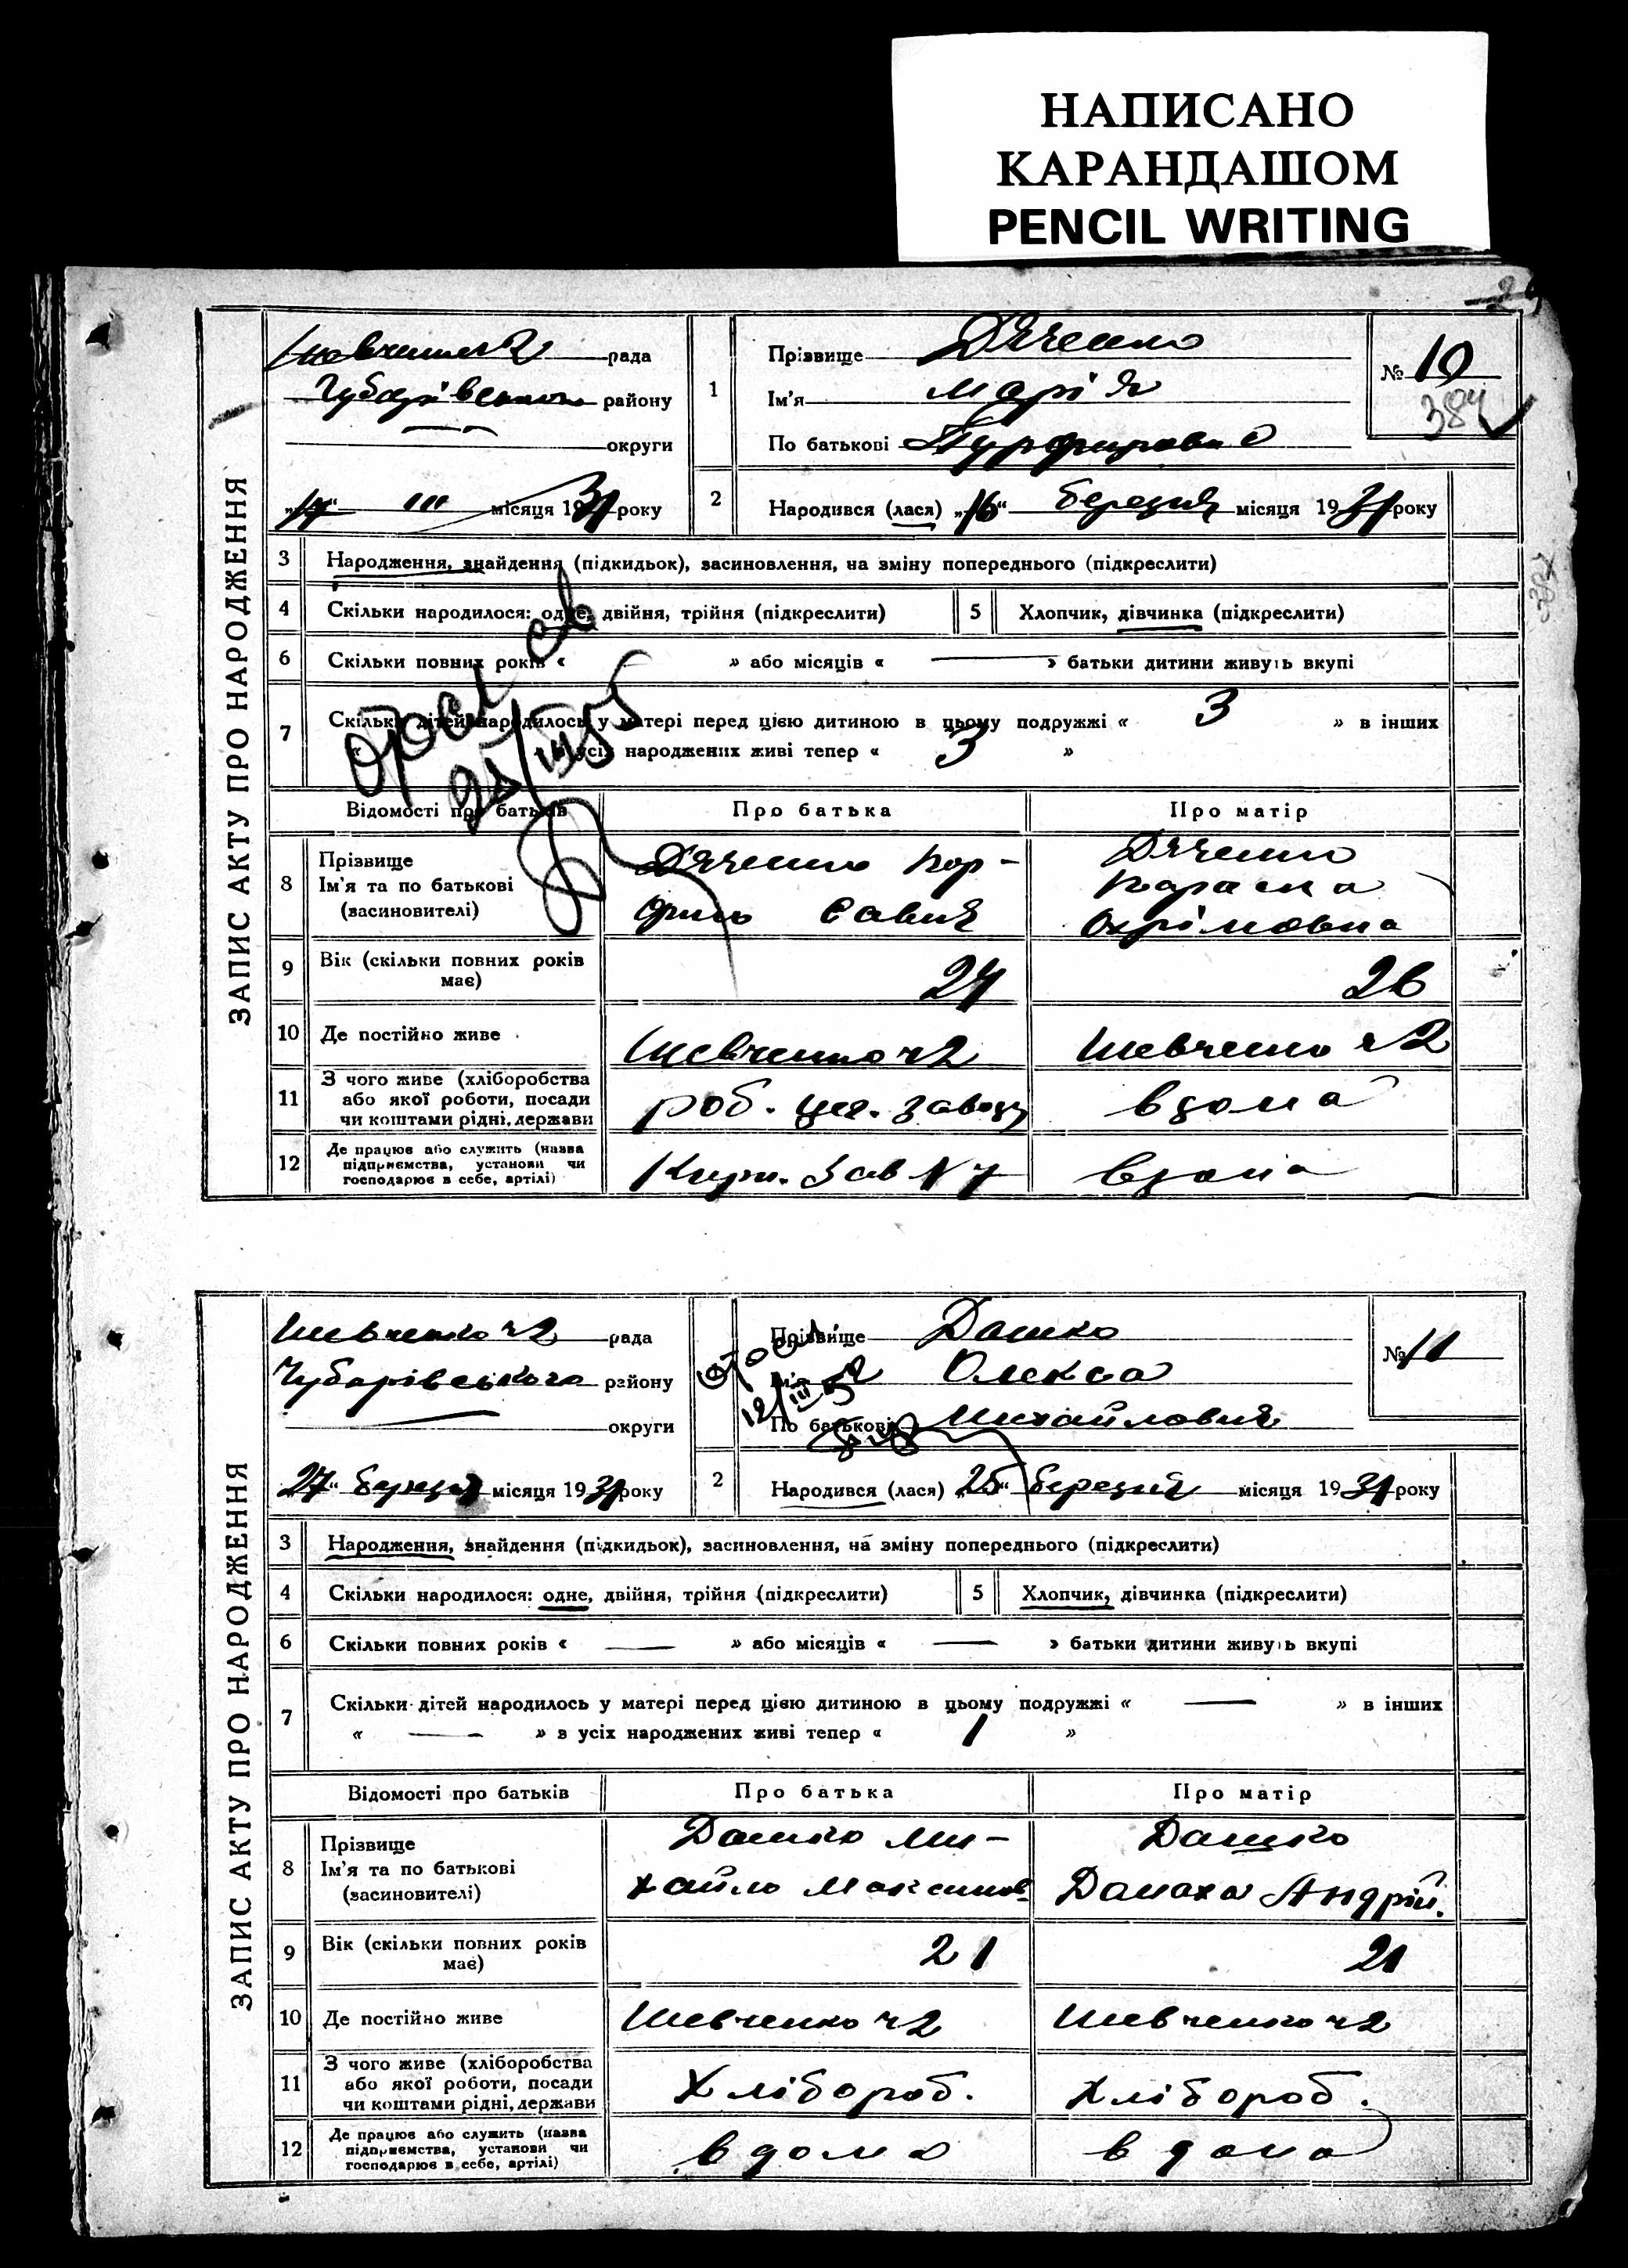 НАПИСАНО
КАРАНДАШОМ
PENCIL WRITING
ЗАПИС АКТУ ПРО НАРОДЖЕННЯ
Шевченко ч2 рада
Чубарівського району
округи
місяця 1931 року
1
Прізвище Дяченко
Ім'я Марія
По батькові
№ 10
384
2 Народився (лася) „16“ березня місяця 1931 року
3 Народження, знайдення (підкидьок), засиновлення, на зміну попереднього (підкреслити)
4 Скільки народилося: одне, двійня, трійня (підкреслити)
5 Хлопчик, дівчинка (підкреслити)
6 Скільки повних років « » або місяців « — » батьки дитини живуть вкупі
7 Скільки дітей народилось у матері перед цією дитиною в цьому подружжі « 3 » в інших
« » в усіх народжених живі тепер « 3 »
Відомості про батьків
Про батька
Про матір
8 Прізвище
Ім'я та по батькові
(засиновителі)
Дяченко Пор-
філь Савич
Дяченко
Параска
Охрімовна
9 Вік (скільки повних років має)
27
26
10 Де постійно живе
Шевченко ч2
Шевченко ч2
11 З чого живе (хліборобства
або якої роботи, посади
чи коштами рідні, держави
роб. цег. заводу
вдома
12 Де працює або служить (назва
підприємства, установи чи
господарює в себе, артілі)
Кирп. Зав N 7
вдома
ЗАПИС АКТУ ПРО НАРОДЖЕННЯ
Шевченко ч2 рада
Чубарівського району
округи
„27“ березня місяця 1931 року
1
Прізвище Дашко
Ім'я Олекса
По батькові Михайлович
№ 11
12/III
2 Народився (лася) „25“ березня місяця 1931 року
3 Народження, знайдення (підкидьок), засиновлення, на зміну попереднього (підкреслити)
4 Скільки народилося: одне, двійня, трійня (підкреслити)
5 Хлопчик, дівчинка (підкреслити)
6 Скільки повних років « — » або місяців « — » батьки дитини живуть вкупі
7 Скільки дітей народилось у матері перед цією дитиною в цьому подружжі « — » в інших
« — » в усіх народжених живі тепер « 1 »
Відомості про батьків
Про батька
Про матір
8 Прізвище
Ім'я та по батькові
(засиновителі)
Дашко Ми-
хайло Максимов.
Дашко
Домаха Андрій.
9 Вік (скільки повних років має)
21
21
10 Де постійно живе
Шевченко ч2
Шевченко ч2
11 З чого живе (хліборобства
або якої роботи, посади
чи коштами рідні, держави
Хлібороб.
Хлібороб.
12 Де працює або служить (назва
підприємства, установи чи
господарює в себе, артілі)
вдома
вдома